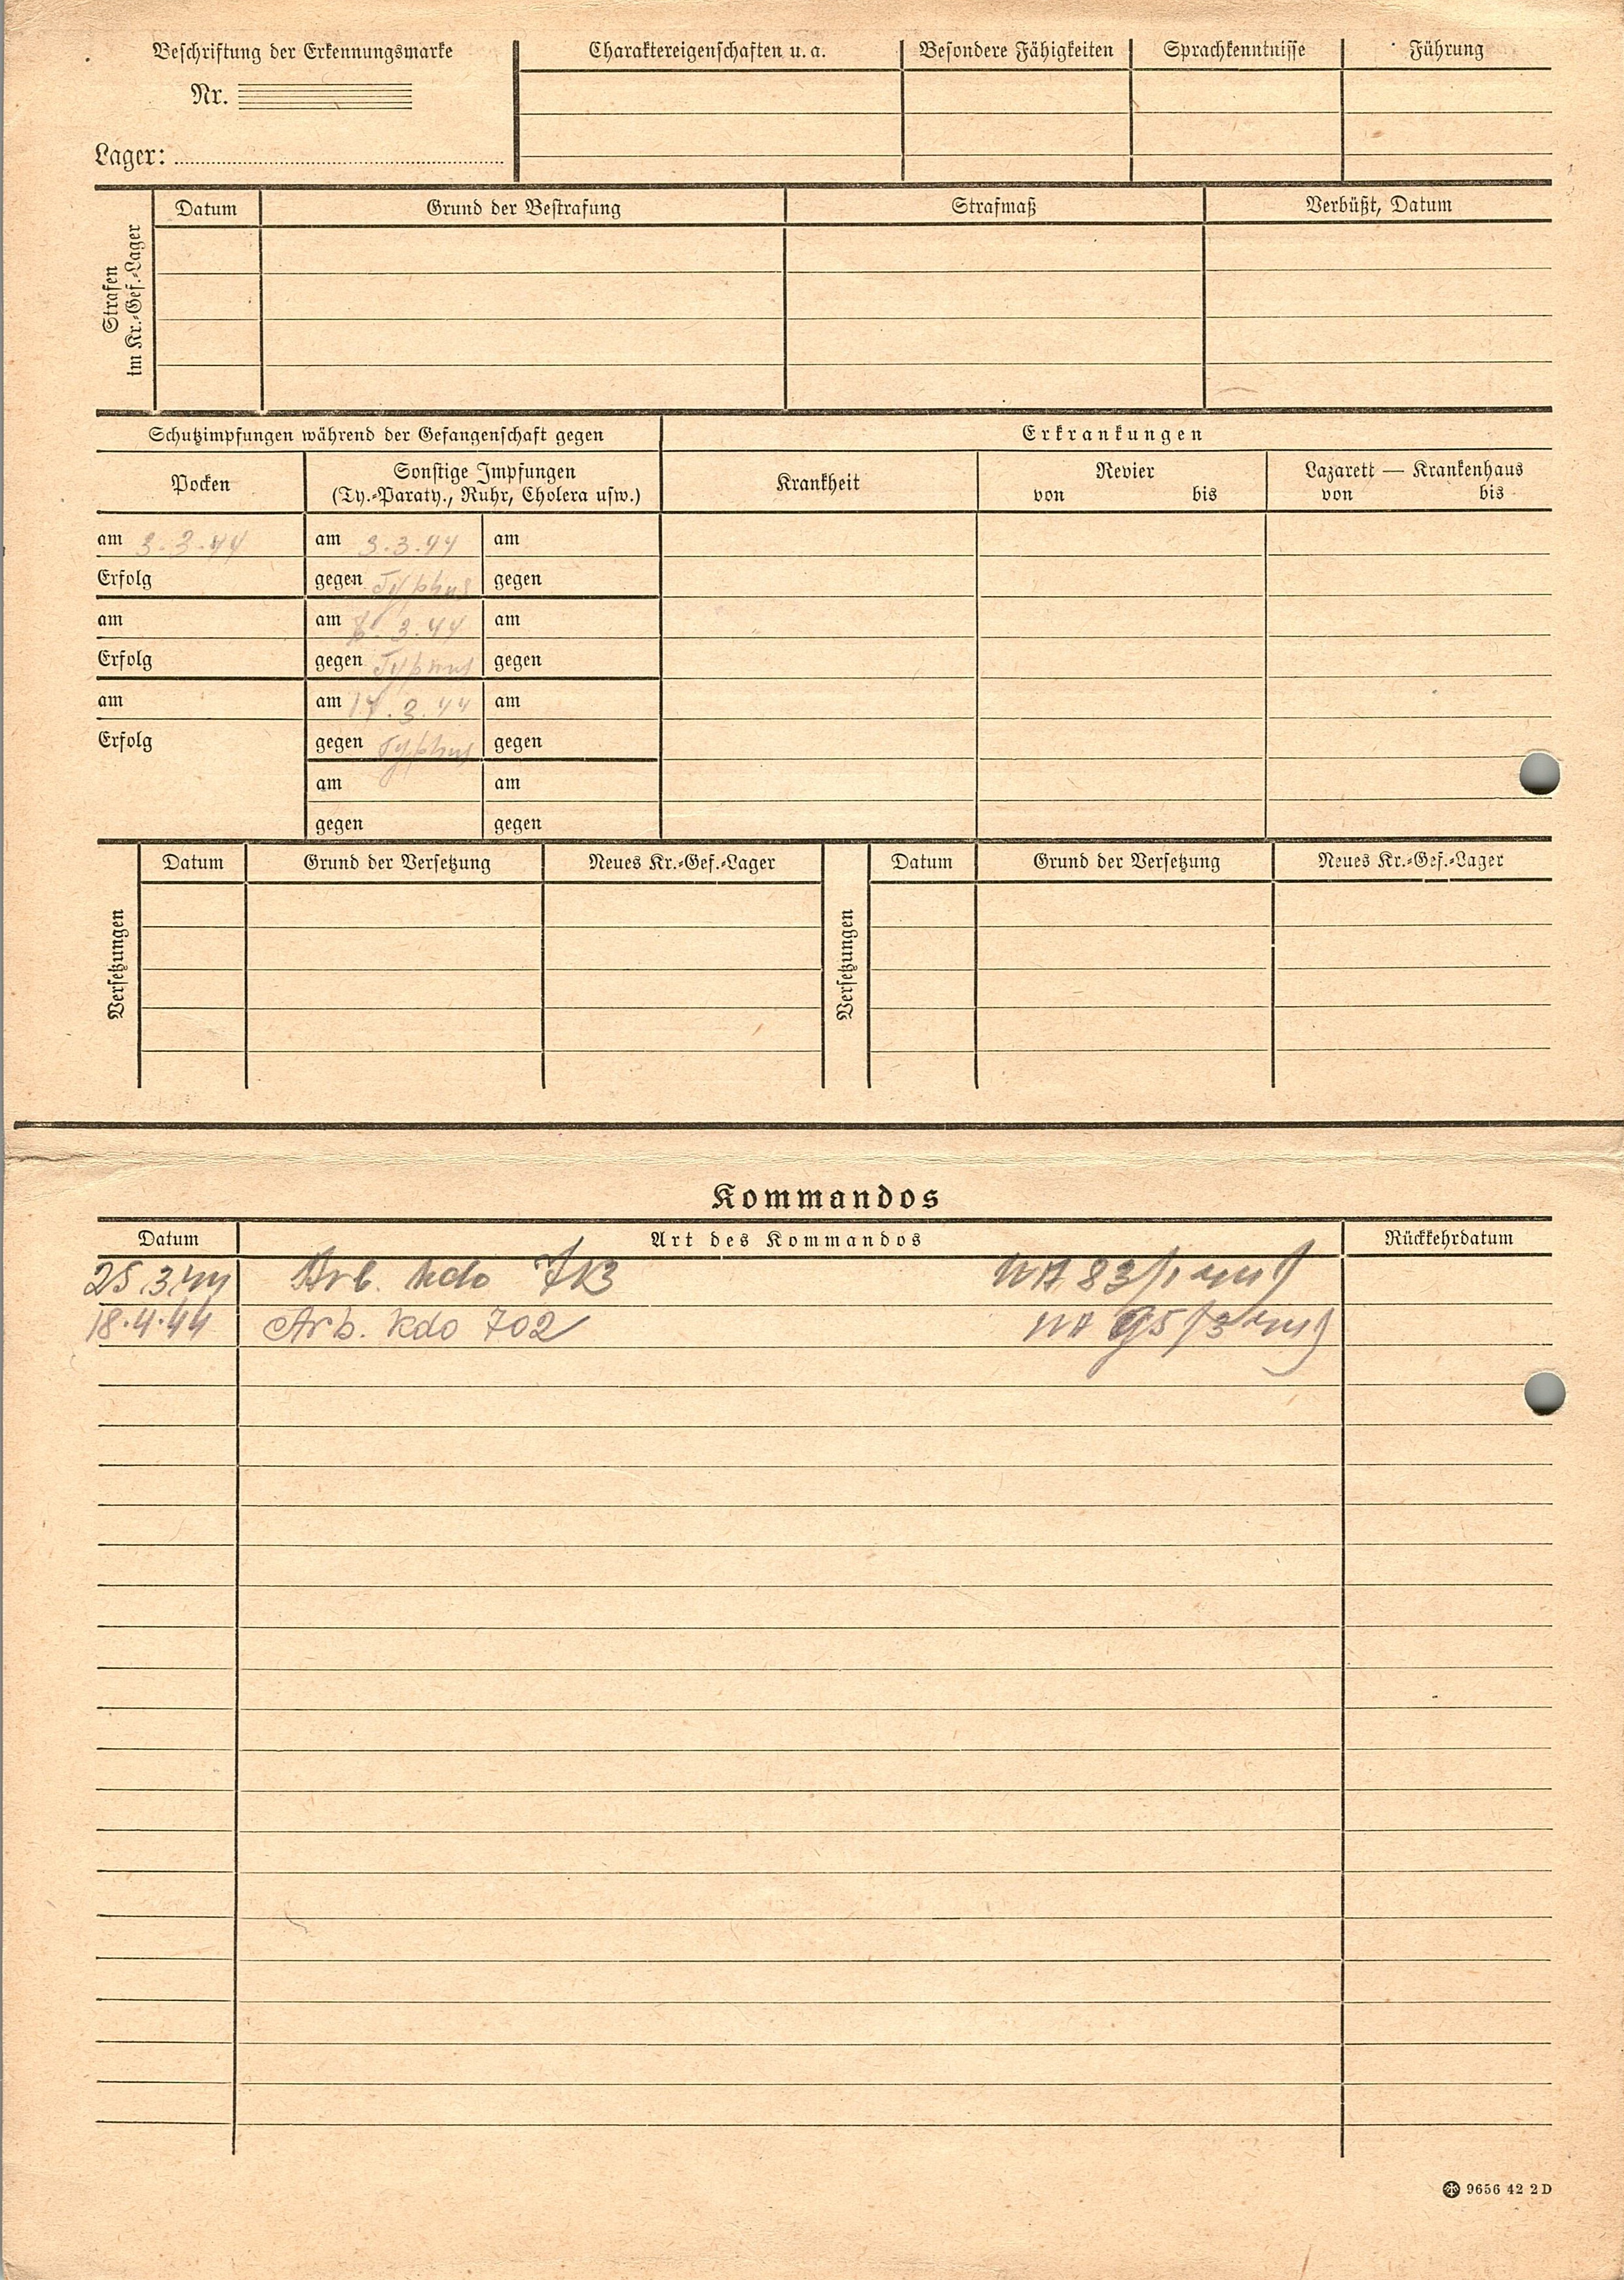 Beschriftung der Erkennungsmarke
Nr.
Lager:
Charaktereigenschaften u. a.
Besondere Fähigkeiten
Sprachkenntnisse
Führung
Strafen
im Kr.-Gef.-Lager
Datum
Grund der Bestrafung
Strafmaß
Verbüßt, Datum
Schutzimpfungen während der Gefangenschaft gegen
Erkrankungen
Pocken
Sonstige Impfungen
(Ty.-Paraty., Ruhr, Cholera usw.)
Krankheit
Revier
von bis
Lazarett — Krankenhaus
von bis
am 3.3.44 am 3.3.44 am
Erfolg gegen Typhus gegen
am am 3.44 am
Erfolg gegen Typhus gegen
am am 17.3.44 am
Erfolg gegen Typhus gegen
am am
gegen gegen
Versetzungen
Datum
Grund der Versetzung
Neues Kr.-Gef.-Lager
Versetzungen
Datum
Grund der Versetzung
Neues Kr.-Gef.-Lager
Kommandos
Datum Art des Kommandos Rückkehrdatum
25.3.44 Arb. kdo WA 83/1
18.4.44 Arb. kdo 702 WA 95/3
9656 42 2 D